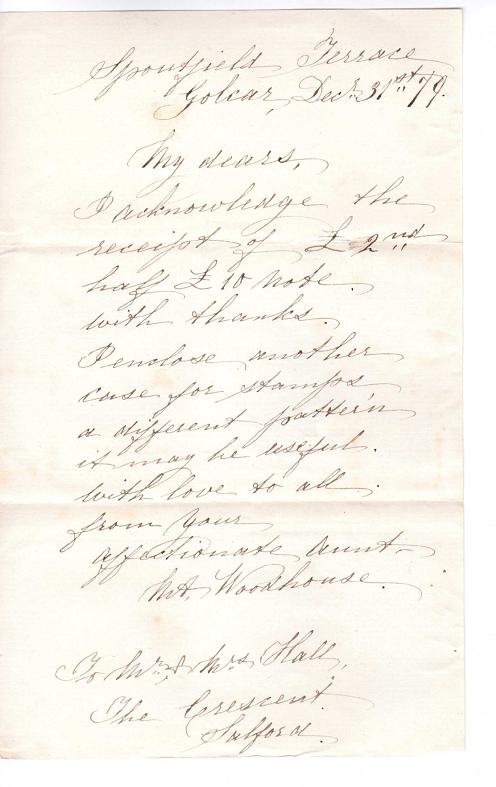 Spoutfield Terrace
Golcar, Decr. 31st 79.
My dears,
I acknowledge the
receipt of £ 2nd
half £10 note.
with thanks.
I enclose another
case for stamps
a different pattern
it may be useful.
With love to all.
from your
affectionate Aunt
M.A. Woodhouse.
To Mr. & Mrs Hall,
The Crescent
Salford.